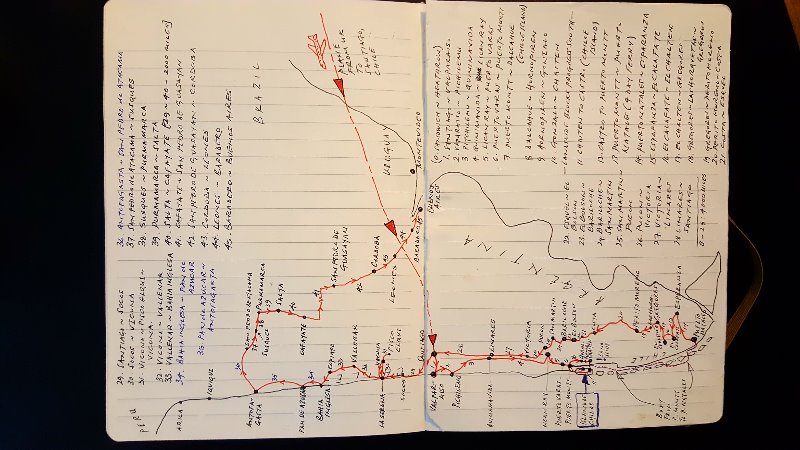 29. SANTIAGO ~ SOCOS
30. SOCOS ~ VICUNA
31. VICUNA ~ PISCO ELQUI ~
VICUNA.
32. VICUNA ~ VALLENAR
33. VALLENAR ~ BAHIA INGLESA
34. BAHIA INGLESA ~ PAN DE
AZUCAR
35. PAN DE AZUCAR ~
ANTOFAGASTA
36. ANTOFAGASTA ~ SAN PEDRO DE ATACAMA
37. SAN PEDRO DE ATACAMA ~ SUSQUES
38. SUSQUES ~ PURMAMARCA
39. PURMAMARCA ~ SALTA
40. SALTA ~ CAFAYETE [29~40 - 2000 MILES]
41. CAFAYETE ~ SAN PEDRO DE GUASAYAN
42. SAN PEDRO DE GUASAYAN ~ CORDOBA
43. CORDOBA ~ LEONES
44. LEONES ~ BARADERO
45. BARADERO ~ BUENOS AIRES
PERU
ARICA
IQUIQUE
ANTOFA-
GASTA
PAN DE AZUCAR
BAHIA
INGLESA
COPIAPO
VALLENAR
LA SERENA
VICUNA
PISCO
ELQUI
SOCOS
SANTIAGO
SUSQUES
PURMAMARCA
SALTA
CAFAYETE
SAN PEDRO DE
GUASAYAN
CORDOBA
LEONES
BARADERO
BUENOS
AIRES
BRAZIL
URUGUAY
MONTEVIDEO
PLANE
FROM UK
TO
SANTIAGO,
CHILE
VALPAR-
AISO
PICHILEMU
LINARES
VICTORIA
LICAN RAY
PUERTO VARAS
PUERTO MONTT
PUCON
SAN MARTIN
BARILOCHE
EL BOLSON
PERITO MORENO
GREGORES
ESPERANZA
PUERTO
NATALES
ARGENTINA
BOAT
FROM
P. MONTT
TO P. NATALES
0. SANDWICH ~ HEATHROW
1. SANTIAGO ~ VALPARAISO
2. VAPARAISO ~ PICHILEMU
3. PITCHILEMU ~ QUINIMAVIDA
4. QUINIMAVIDA ~ LICAN RAY
5. LICAN RAY ~ PUERTO VARAS
6. PUERTO VARAS ~ PUERTO MONTT
7. PUERTO MONTT ~ DALCAHUE
(CHILOE ISLAND)
8. DALCAHUE ~ HORNOPIREN
9. HORNOPIREN ~ GONZALO
10. GONZALO ~ CHAITEN
LANDSLIDE BLOCKS PROGRESS SOUTH ~
11. CHAITEN TO CASTRO (CHILOE
ISLAND)
12. CASTRO TO PUERTO MONTT
13. PUERTO MONTT ~ PUERTO
NATALES (4 DAY FERRY)
14. PUERTO NATALES ~ ESPARANZA
15. ESPARANZA ~ EL CALAFATE
16. EL CALAFATE ~ EL CHALTEN
17. EL CHALTEN ~ GREGORES
18. GREGORES ~
GREGORES
19. GREGORES ~ PERITO MORENO
20. PERITO MORENO ~ COSTA
21. COSTA ~ ESQUEL
22. ESQUEL ~ EL
BOLSON
23. EL BOLSON ~
BARILOCHE
24. BARILOCHE ~
SAN MARTIN
25. SAN MARTIN ~
PUCON
26. PUCON ~
VICTORIA
27. VICTORIA ~
LINARES
28. LINARES ~
SANTIAGO
0 - 28: 4000 MILES